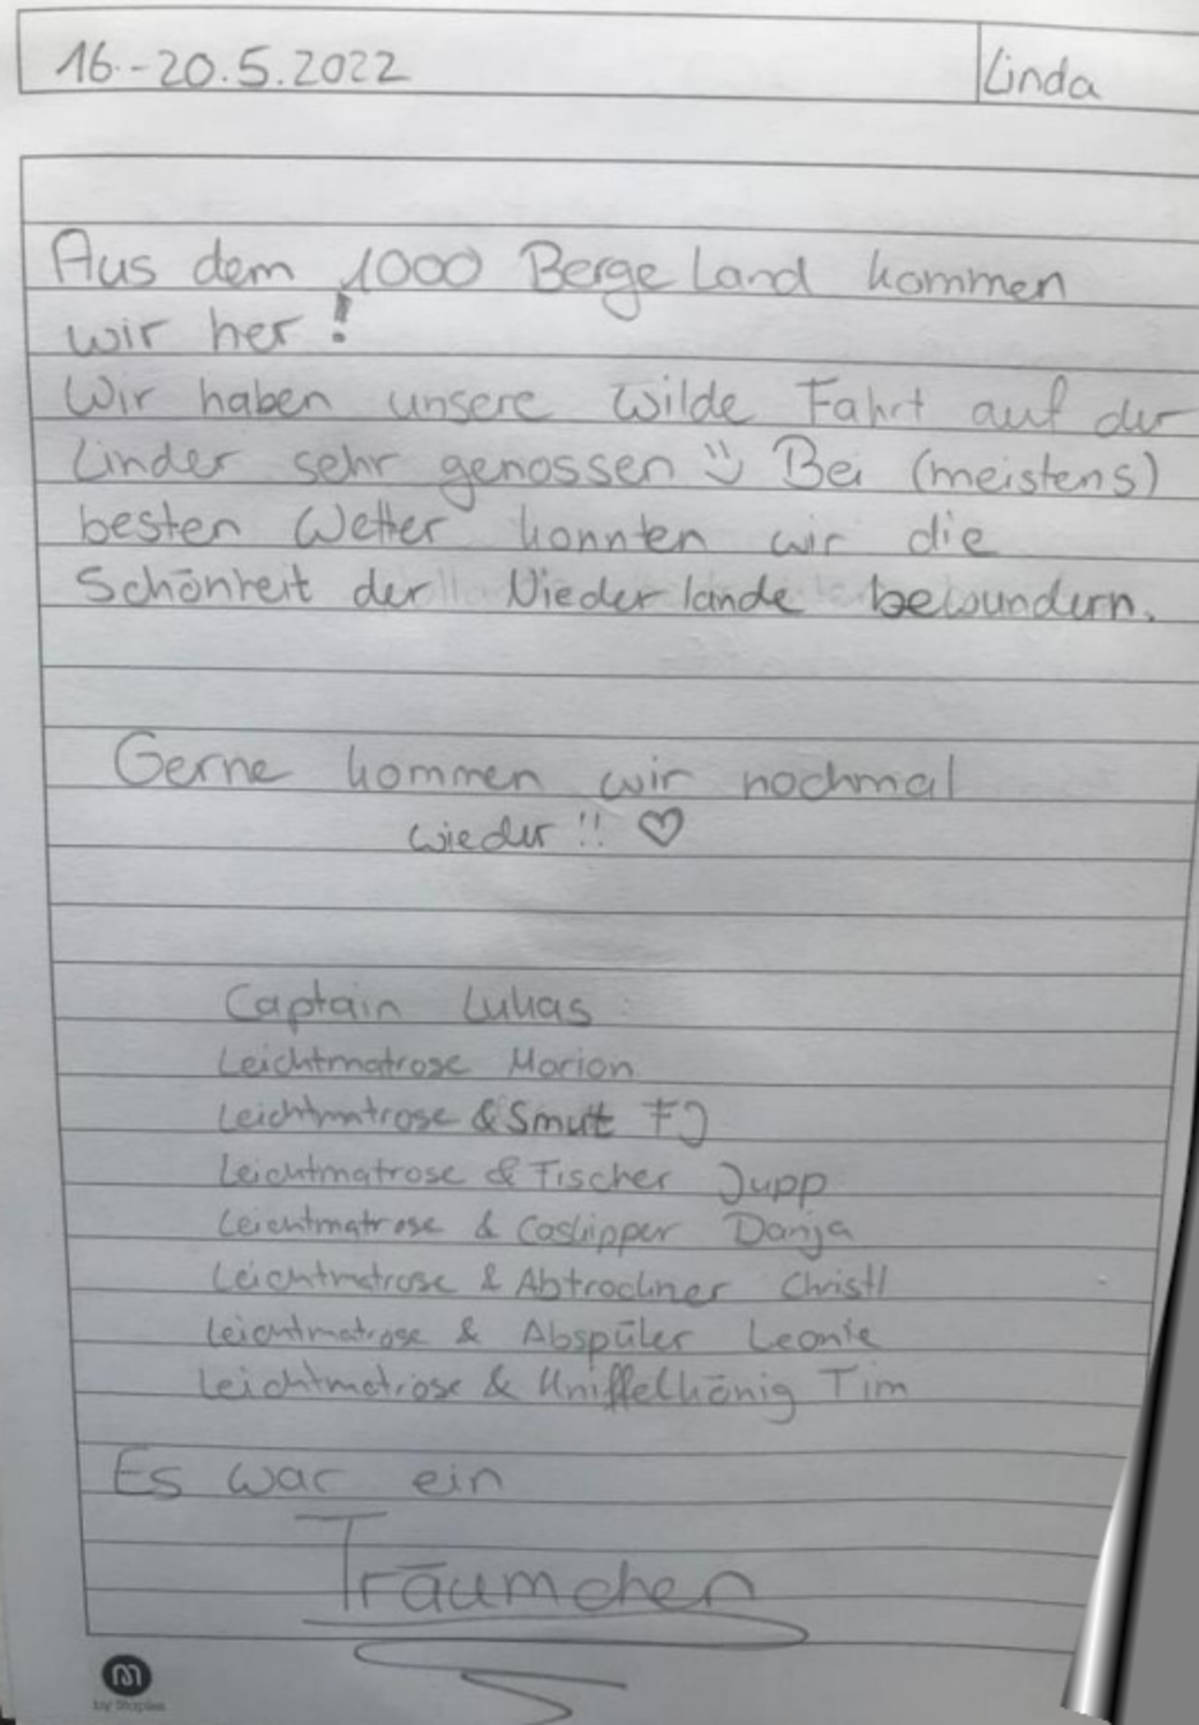 16.-20.5.2022
Linda
Aus dem 1000 Berge Land kommen
wir her!
Wir haben unsere wilde Fahrt auf der
Linder sehr genossen Bei (meistens)
besten Wetter konnten wir die
Schönheit der Niederlande bewundern.
Gerne kommen wir nochmal
wieder!! ♡
Captain Lukas
Leichtmatrose Marion
Leichtmatrose & Smutt FJ
Leichtmatrose & Fischer Jupp
Leichtmatrose & Coskipper Danja
Leichtmatrose & Abtrockner Christl
Leichtmatrose & Abspüler Leonie
Leichtmatrose & Kniffelkönig Tim
Es war ein
Träumchen
by Staples